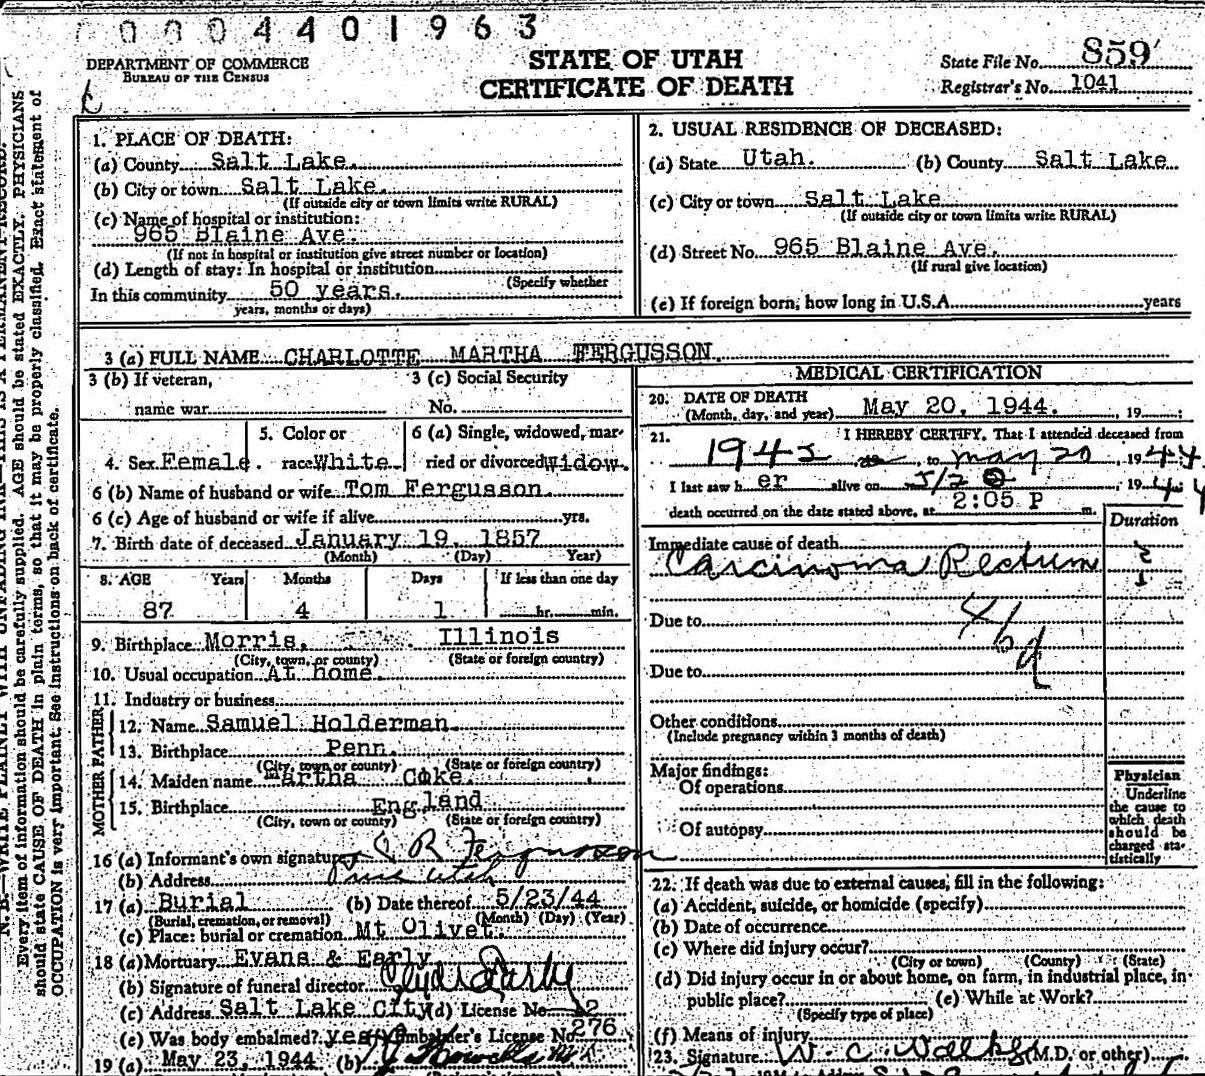 0004401963
DEPARTMENT OF COMMERCE
BUREAU OF THE CENSUS
STATE OF UTAH
CERTIFICATE OF DEATH
State File No. 859
Registrar's No. 1041
N. B.—WRITE PLAINLY WITH UNFADING INK—THIS IS A PERMANENT RECORD.
Every item of information should be carefully supplied. AGE should be stated EXACTLY. PHYSICIANS
should state CAUSE OF DEATH in plain terms, so that it may be properly classified. Exact statement of
OCCUPATION is very important. See instructions on back of certificate.
1. PLACE OF DEATH:
(a) County Salt Lake.
(b) City or town Salt Lake.
(If outside city or town limits write RURAL)
(c) Name of hospital or institution:
965 Blaine Ave.
(If not in hospital or institution give street number or location)
(d) Length of stay: In hospital or institution
(Specify whether
In this community 50 years.
years, months or days)
2. USUAL RESIDENCE OF DECEASED:
(a) State Utah. (b) County Salt Lake
(c) City or town Salt Lake
(If outside city or town limits write RURAL)
(d) Street No. 965 Blaine Ave.
(If rural give location)
(e) If foreign born, how long in U.S.A. years
3 (a) FULL NAME CHARLOTTE MARTHA FERGUSSON.
3 (b) If veteran, 3 (c) Social Security
name war No.
5. Color or 6 (a) Single, widowed, mar-
4. Sex Female. race White. ried or divorced Widow.
6 (b) Name of husband or wife Tom Fergusson.
6 (c) Age of husband or wife if alive yrs.
7. Birth date of deceased January 19, 1857
(Month) (Day) Year)
8. AGE Years Months Days If less than one day
87 4 1 hr. min.
9. Birthplace Morris, Illinois
(City, town, or county) (State or foreign country)
10. Usual occupation At home.
11. Industry or business
FATHER
12. Name Samuel Holderman.
13. Birthplace Penn.
(City, town or county) (State or foreign country)
MOTHER
14. Maiden name Martha Coke.
15. Birthplace England
(City, town or county) (State or foreign country)
16 (a) Informant's own signature R Fergusson
(b) Address Utah
17 (a) Burial (b) Date thereof 5/23/44
(Burial, cremation, or removal) (Month) (Day) (Year)
(c) Place: burial or cremation Mt Olivet.
18 (a) Mortuary Evans & Early
(b) Signature of funeral director Clyde Early
(c) Address Salt Lake City (d) License No. 2
(e) Was body embalmed? yes (f) Embalmer's License No. 276
19 (a) May 23, 1944 (b)
MEDICAL CERTIFICATION
20. DATE OF DEATH
(Month, day, and year) May 20, 1944. , 19 ;
21. I HEREBY CERTIFY, That I attended deceased from
1942 to May 20, 1944
I last saw her alive on 5/20, 1944;
death occurred on the date stated above, at 2:05 P m.
Duration
Immediate cause of death
Carcinoma Rectum
Due to
46d
Due to
Other conditions
(Include pregnancy within 3 months of death)
Major findings:
Of operations
Of autopsy
Physician
Underline
the cause to
which death
should be
charged sta-
tistically
22. If death was due to external causes, fill in the following:
(a) Accident, suicide, or homicide (specify)
(b) Date of occurrence
(c) Where did injury occur?
(City or town) (County) (State)
(d) Did injury occur in or about home, on farm, in industrial place, in
public place? (e) While at Work?
(Specify type of place)
(f) Means of injury
23. Signature W. C. (M.D. or other)